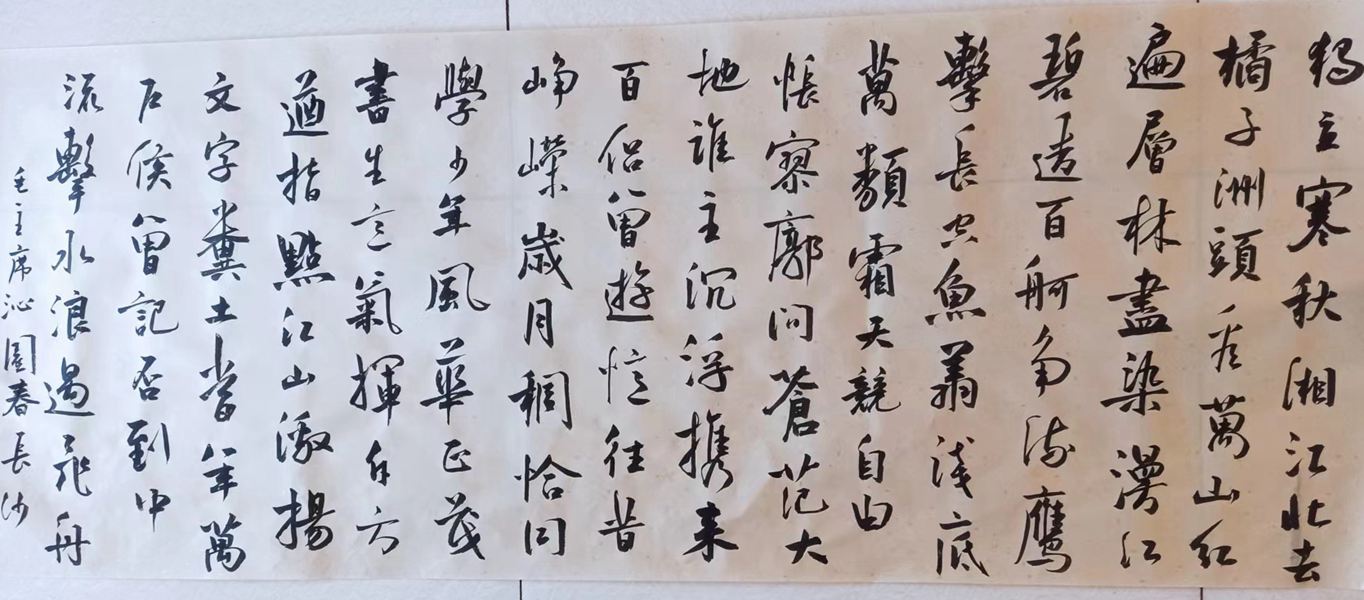 獨立寒秋湘江北去
橘子洲頭看萬山紅
遍層林盡染漫江
碧透百舸争流鷹
擊長空魚翔淺底
萬類霜天競自由
悵寥廓問蒼茫大
地誰主沉浮攜来
百侣曾遊憶往昔
峥嶸歲月稠恰同
學少年風華正茂
書生意氣揮斥方
遒指點江山激揚
文字糞土當年萬
户侯曾記否到中
流擊水浪遏飛舟
毛主席沁園春長沙